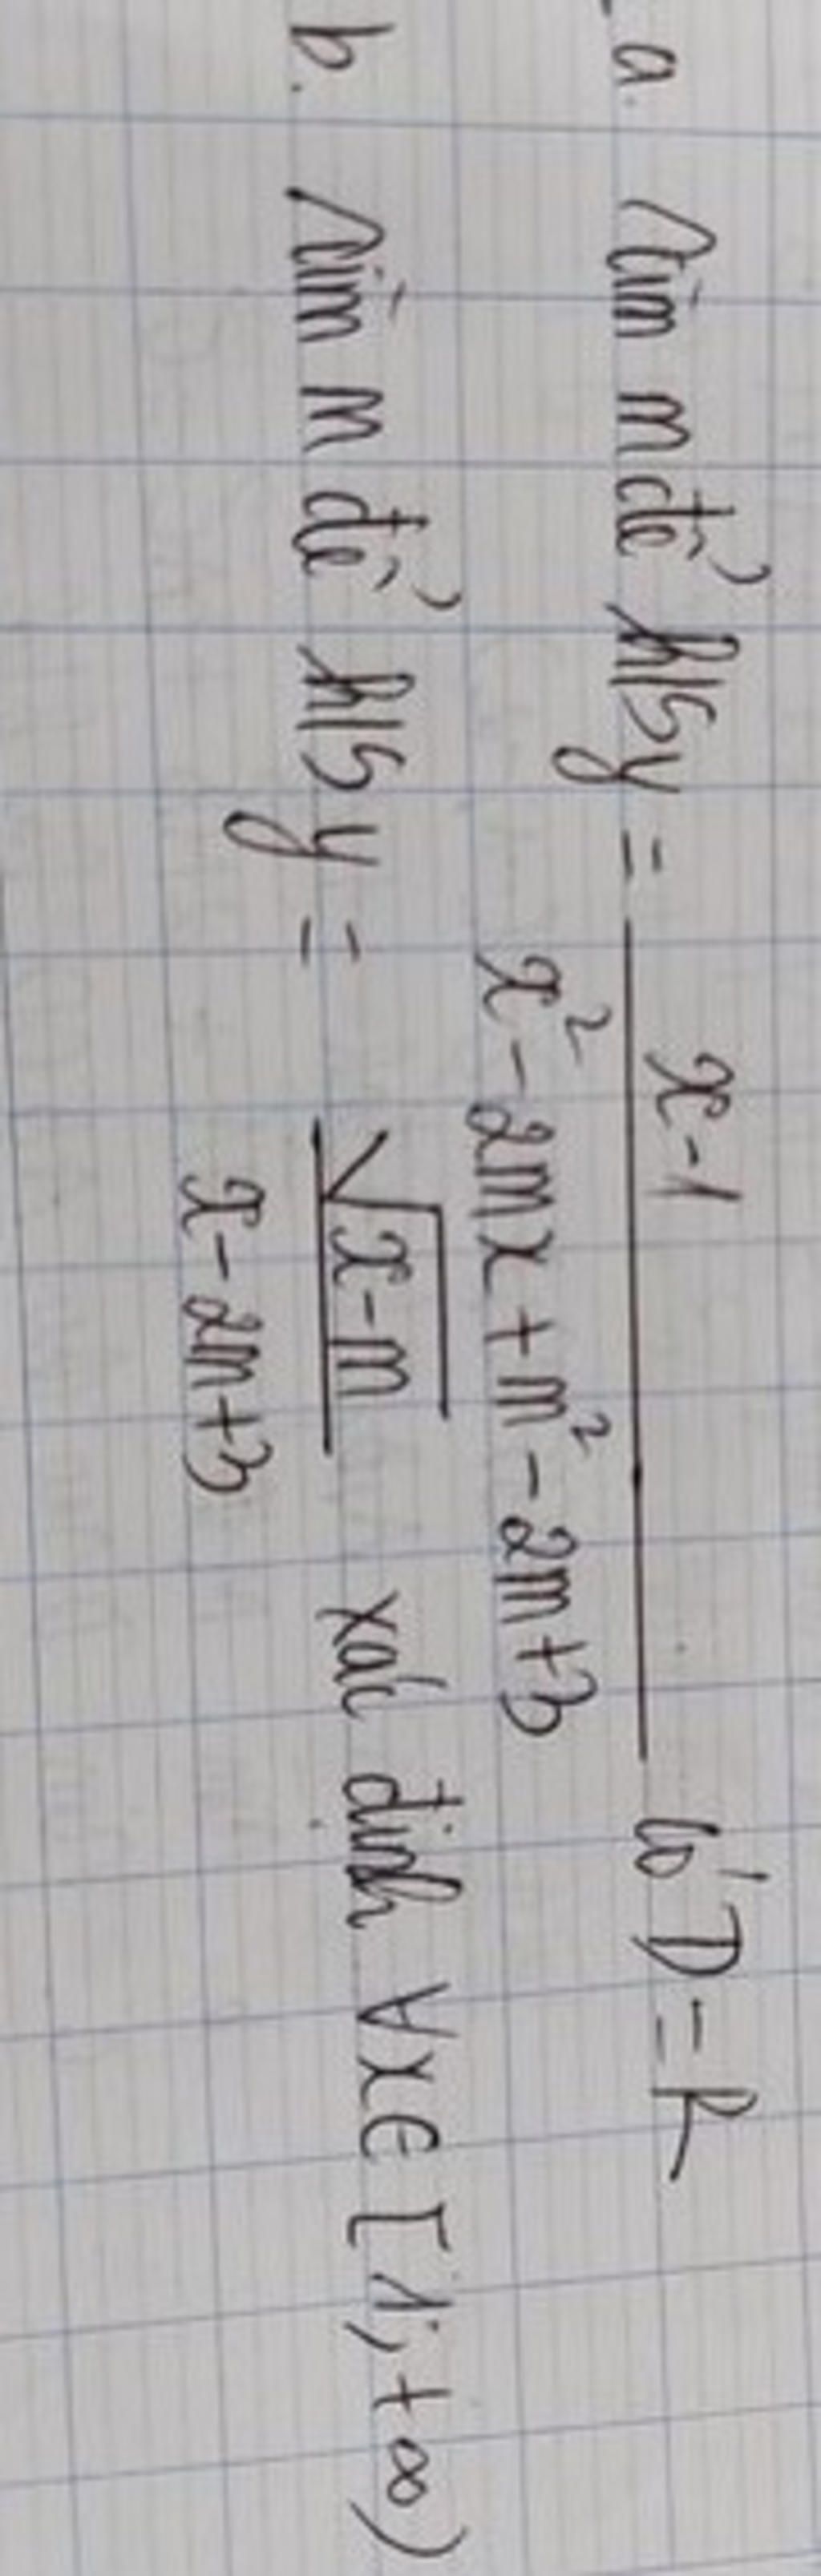 a. Tìm m để h/s y = \frac{x-1}{x^2-2mx+m^2-2m+3} có D=R
b. Tìm m để h/s y = \frac{\sqrt{x-m}}{x-2m+3} xác định ∀x∈[1;+∞)